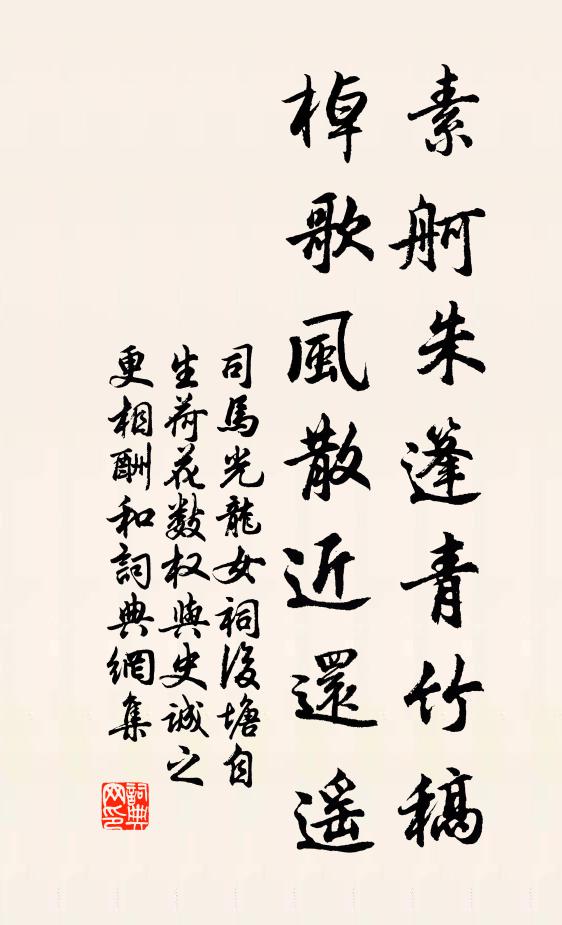 素舸朱篷青竹稿
棹歌風散近還遥
司馬光龍女祠後塘自
生荷花數枝與史誠之
更相酬和詞典網集
詞典
网印